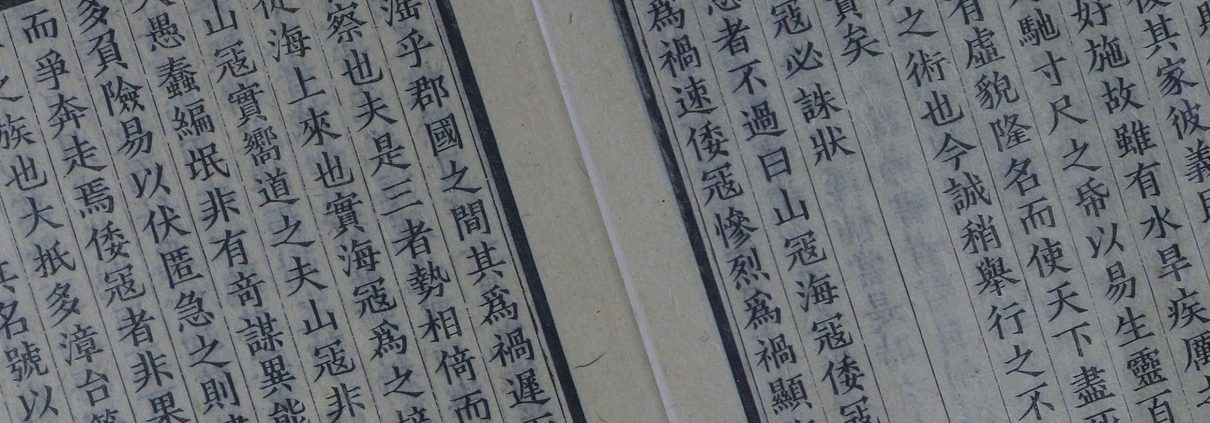 後其家彼義
好施故雖有水旱疾
馳寸尺之帋以易生靈百
有虛貌隆名而使天下盡
之術也今誠稍舉行之不
矣
寇必誅狀
者不過曰山寇海寇倭寇
爲禍速倭寇慘烈爲禍顯
乎郡國之間其爲禍遲
察也夫是三者勢相倚而
從海上來也實海寇爲之
山寇實嚮道之夫山寇非
愚蠢編氓非有奇謀異能
多負險易以伏匿急之則
而爭奔走焉倭寇者非果
之族也大抵多漳台
其名號以